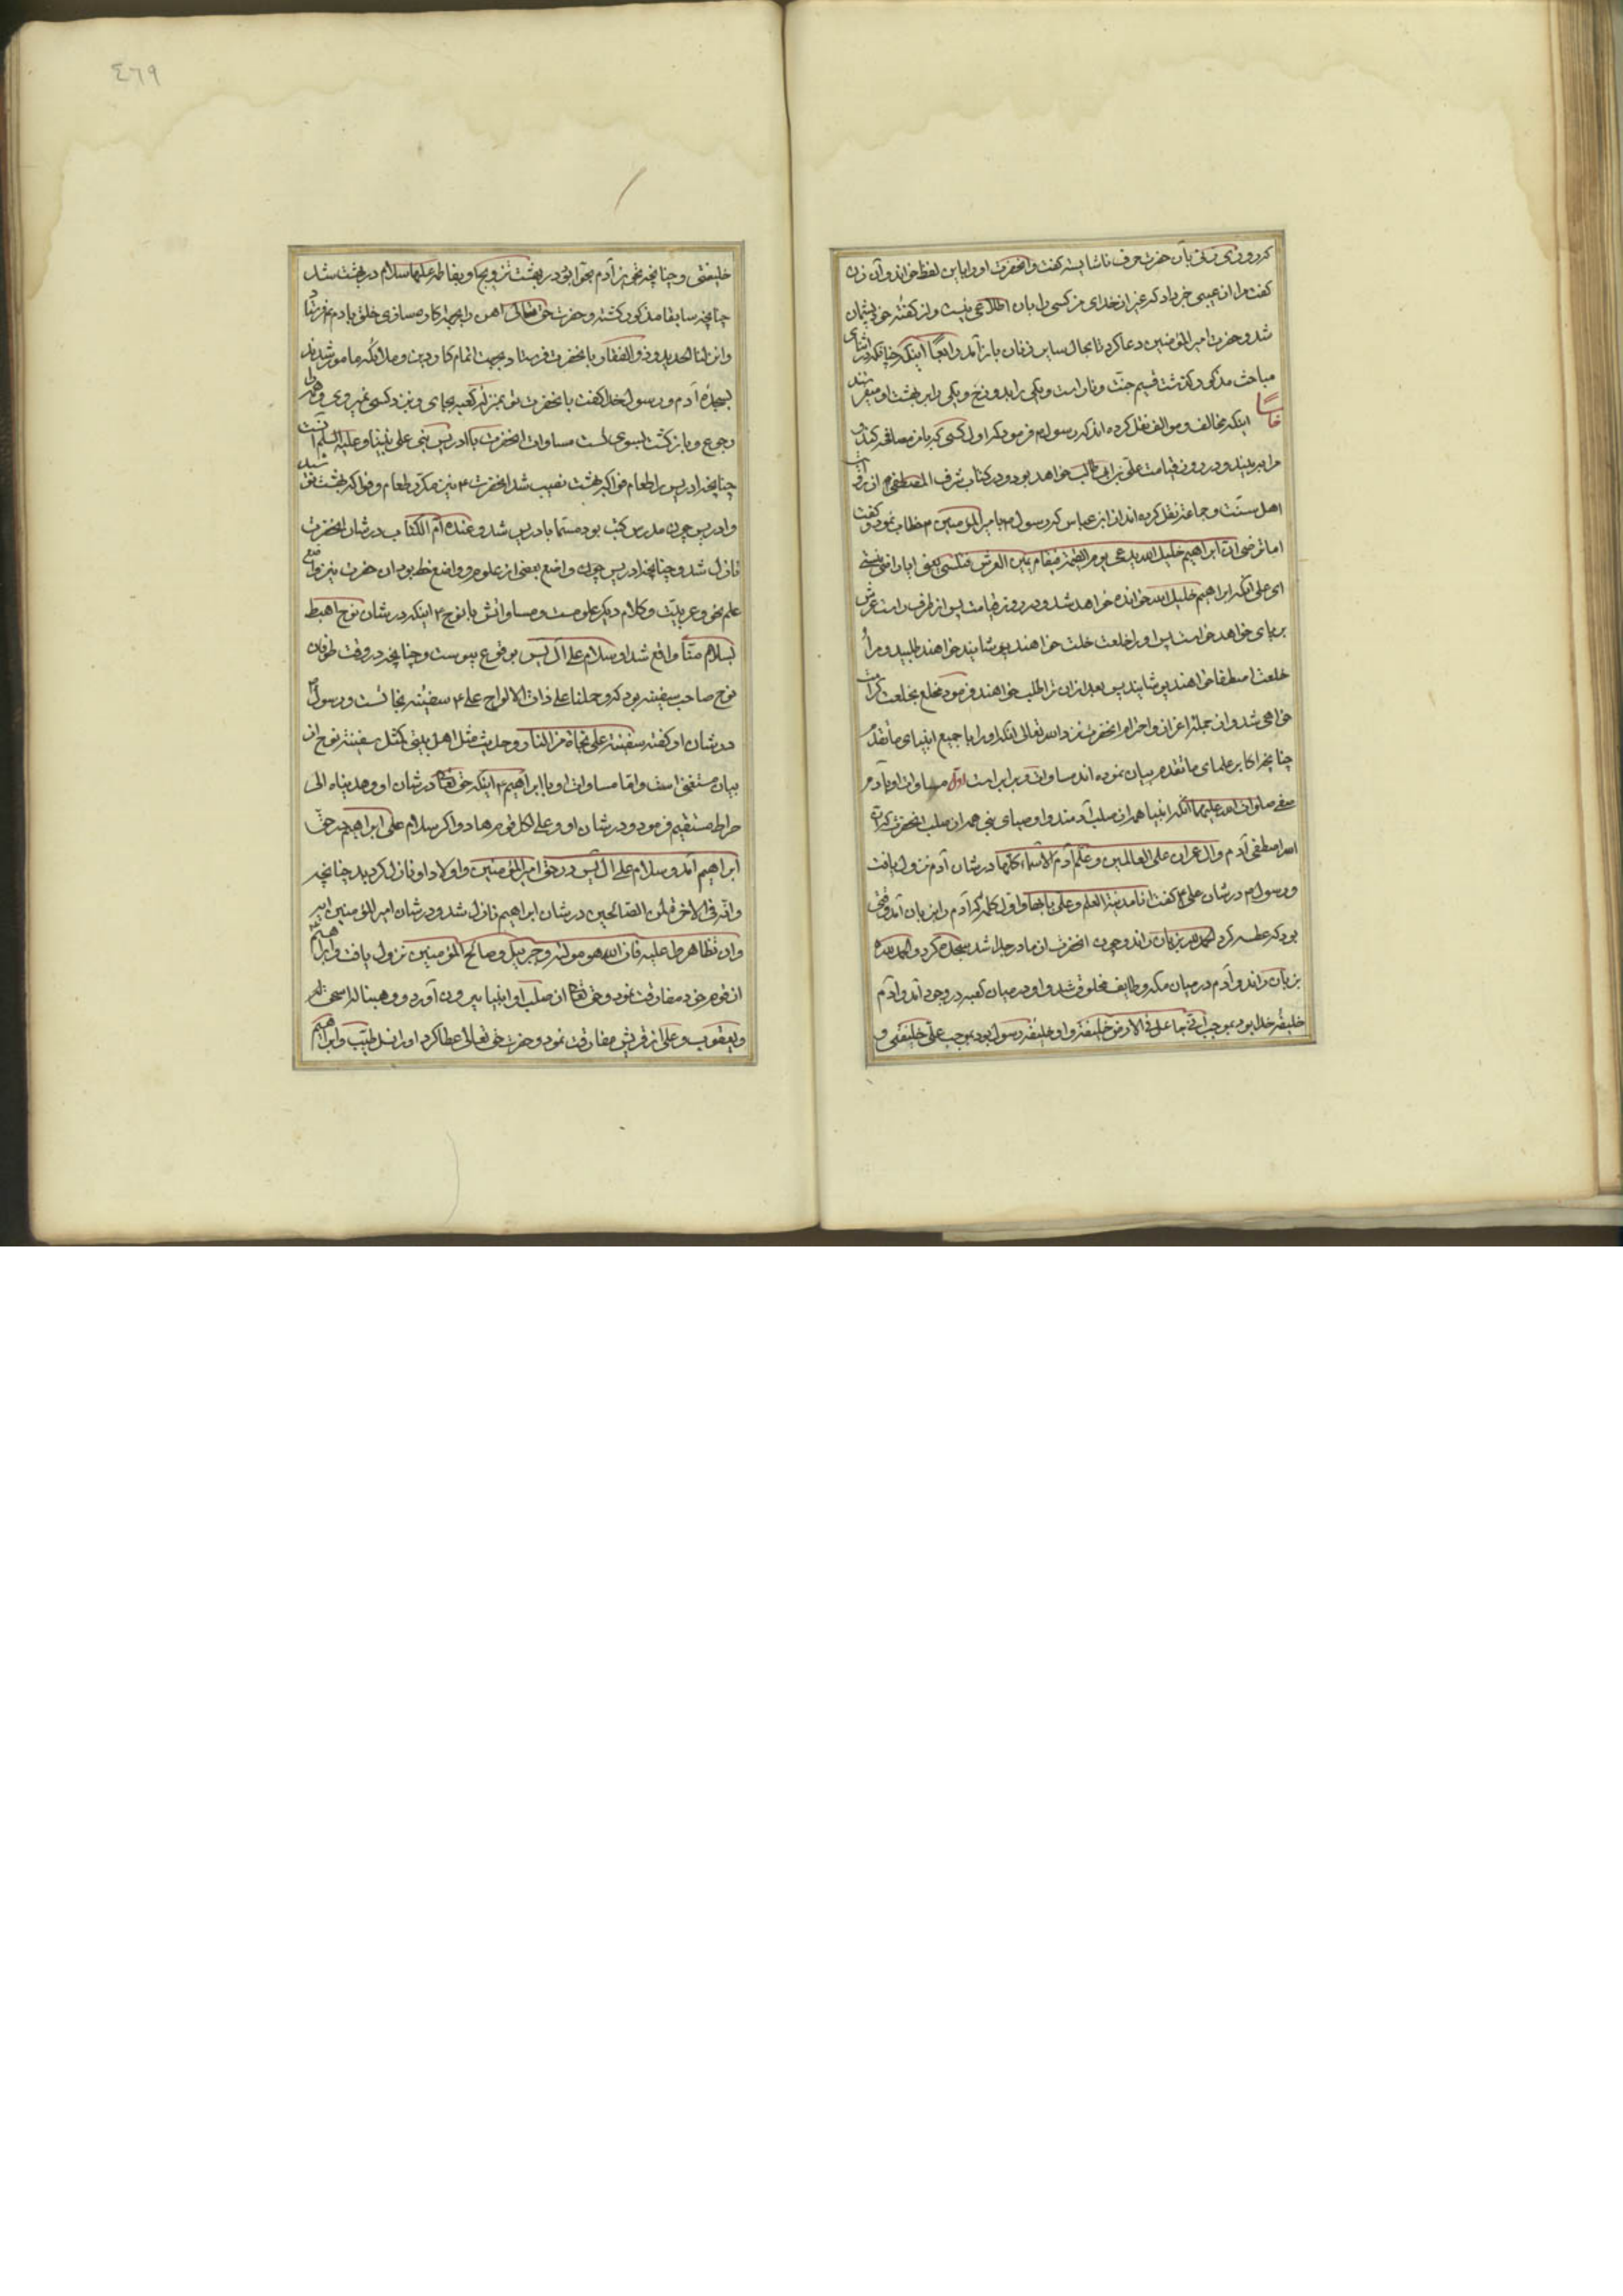 کرد روزی زنی بآن حضرت حرف ناشایسته گفت و آنحضرت او را باین لفظ خواند و آن زن
گفت مرا از عیبی خبر داد که غیر از خدای من کسی را بان اطلاعی نیست و از گفته خود پشیمان
شد و حضرت امیر المؤمنین دعا کرد تا بحال سایر زنان باز آمد رابعا اینکه چنانکه در اثنای
مباحث مذکور گذشت قسیم جنت و نار است و یکی را بدوزخ و یکی را به بهشت او میفرستد
خامسا اینکه مخالف و موالف نقل کرده اند که رسول م فرمود که اول کسی که با من مصافحه کند
مرا ببیند در روز قیامت علی بن ابی طالب خواهد بود و در کتاب شرف المصطفی م از
اهل سنت و جماعة نقل کرده اند از ابن عباس که رسول م بامیر المؤمنین م خطاب نمود و گفت
اما ترضی ان ابراهیم خلیل الله یدعی یوم القیمة فیقام یمین العرش فیکسی یعنی ایا راضی نیستی
ای علی آنکه ابراهیم خلیل الله خوانده خواهد شد در روز قیامت پس از طرف راست عرش
بر پای خواهد خواست پس او را خلعت خلت خواهند پوشانید خواهند طلبید و مرا
خلعت اصطفا خواهند پوشانید پس بعد از ان ترا طلب خواهند فرمود مخلع بخلعت کرامت
خواهی شد و از جمله اعزاز و احترام آنحضرت نزد الله تعالی آنکه او را با جمیع انبیای ما تقدم
چنانچه اکابر علمای ما تقدم بیان نموده اند مساوات و برابر است اول مساوات او با آدم
صفی صلوات الله علیهما آنکه انبیا همه از صلب آدمند و اوصیای نبی همه از صلب آنحضرت
الله اصطفی آدم و آل عمران علی العالمین و علم آدم الاسماء کلها در شان آدم نزول یافت
و رسول م در شان علی ع گفت انا مدینة العلم و علی بابها و اول کلمه که آدم را بزبان آمد وقتی
بود که عطسه کرد الحمد لله بزبان راند و چون آنحضرت از مادر جدا شد سجده کرد و الحمد لله
بزبان راند و آدم در میان مکه و طایف مخلوق شد و او در میان کعبه در وجود آمد و آدم
خلیفه خدا بود بموجب انی جاعل فی الارض خلیفة و او خلیفه رسول بود بموجب علی خلیفتی و
٤٦٩
خلیفتی و چنانچه تزویج آدم بحوا بود در بهشت تزویج او بفاطمه علیها سلام در بهشت شد
چنانچه سابقا مذکور گشته و حضرت حق تعالی آهن را بجهة کار و مسازی خلق بآدم ع فرستاد
و انزلنا الحدید و ذو الفقار بآنحضرت فرستاد بجهت اتمام کار دین و ملائکه مامور شدند
بسجده آدم و رسول خدا گفت بآنحضرت تو بمنزله کعبه بجای و نزد کسی نمیروی و همه را
رجوع و بازگشت بسوی تست مساوات آنحضرت با ادریس نبی علی نبینا و علیه السلم آنست
چنانچه ادریس را طعام فواکه بهشت نصیب شد آنحضرت ع نیز مکرر طعام و فواکه بهشت
و ادریس چون مدرس کتب بود مسما بادریس شد و عنده ام الکتاب در شان آنحضرت
نازل شد و چنانچه ادریس چون واضع بعضی از علوم و واضع خط بود آن حضرت نیز واضع
علم نحو و عربیت و کلام دیگر علومست و مساواتش با نوح ع اینکه در شان نوح اهبط
بسلام منا واقع شد او سلام علی آل یس بوقوع پیوست و چنانچه در وقت طوفان
نوح صاحب سفینه بود که و حملنا علی ذات الالواح علی ع سفینه نجاتست و رسول م
در شان او گفته سفینة علی نجاة من النار و حدیث مثل اهل بیتی کمثل سفینة نوح از
بیان مستغنی است و اما مساوات او با ابراهیم ع اینکه حق تعالی در شان او و هدیناه الی
صراط مستقیم فرمود و در شان او و علی لکل قوم هاد و اگر سلام علی ابراهیم در حق
ابراهیم آمد و سلام علی آل یس در حق امیر المؤمنین و اولاد او نازل گردید چنانچه
و انه فی الاخرة لمن الصالحین در شان ابراهیم نازل شد و در شان امیر المؤمنین آیه
و ان تظاهرا علیه فان الله هو مولیه و جبریل و صالح المؤمنین نزول یافت و ابراهیم
از قوم خود مفارقت نمود و حق تعالی از صلب او انبیا بیرون آورد و وهبنا له اسحق
و یعقوب و علی از قریش مفارقت نمود و حضرت حق تعالی عطا کرد او را نسل طیب و ابراهیم